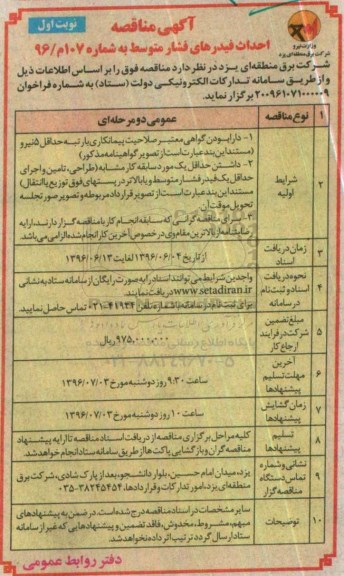 نوبت اول
آگهی مناقصه
وزارت نیرو
شرکت برق منطقه‌ای یزد
احداث فیدرهای فشار متوسط به شماره ۱۰۷م/۹۶
شرکت برق منطقه‌ای یزد در نظر دارد مناقصه فوق را بر اساس اطلاعات ذیل
و از طریق سامانه تدارکات الکترونیکی دولت (ستاد) به شماره فراخوان
۲۰۰۹۶۱۰۷۱۰۰۰۰۰۹ برگزار نماید.
۱ نوع مناقصه عمومی دو مرحله‌ای
۲ شرایط اولیه
۱- دارا بودن گواهی معتبر صلاحیت پیمانکاری با رتبه حداقل ۵ نیرو
(مستند این بند عبارت است از تصویر گواهینامه مذکور)
۲- داشتن حداقل یک مورد سابقه کار مشابه (طراحی، تامین و اجرای
حداقل یک فیدر فشار متوسط و یا بالاتر در پستهای فوق توزیع یا انتقال)
مستند این بند عبارت است از تصویر قرارداد مربوطه و تصویر صورتجلسه
تحویل موقت آن.
۳- برای مناقصه گرانی که سابقه انجام کار با مناقصه گزار دارند، ارایه
رضایتنامه از بالاترین مقام وی در خصوص آخرین کار انجام شده الزامی می‌باشد.
۳ زمان دریافت اسناد از تاریخ ۱۳۹۶/۰۶/۰۴ لغایت ۱۳۹۶/۰۶/۱۳
۴ نحوه دریافت اسناد و ثبت نام در سامانه
واجدین شرایط می‌توانند اسناد را به صورت رایگان از سامانه ستاد به نشانی
www.setadiran.ir دریافت نمایند.
برای ثبت نام در سامانه با شماره تلفن ۴۱۹۳۴-۰۲۱ تماس حاصل نمایید.
۵ مبلغ تضمین شرکت در فرایند ارجاع کار ۹۷۵,۰۰۰,۰۰۰ ریال
۶ آخرین مهلت تسلیم پیشنهادها ساعت ۹:۳۰ روز دوشنبه مورخ ۱۳۹۶/۰۷/۰۳
۷ زمان گشایش پیشنهادها ساعت ۱۰ روز دوشنبه مورخ ۱۳۹۶/۰۷/۰۳
۸ تسلیم پیشنهادها
کلیه مراحل برگزاری مناقصه از دریافت اسناد مناقصه تا ارایه پیشنهاد
مناقصه گران و بازگشایی پاکت ها از طریق سامانه ستاد انجام خواهد شد.
۹ نشانی و شماره تماس دستگاه مناقصه گزار
یزد، میدان امام حسین، بلوار دانشجو، بعد از پارک شادی، شرکت برق
منطقه‌ای یزد، امور تدارکات و قراردادها، ۳۸۲۴۵۴۵۴-۰۳۵
۱۰ توضیحات
سایر مشخصات در اسناد مناقصه درج شده است. در ضمن به پیشنهادهای
مبهم، مشروط، مخدوش، فاقد تضمین و پیشنهادهایی که غیر از سامانه
ستاد ارسال گردد ترتیب اثر داده نخواهد شد.
دفتر روابط عمومی